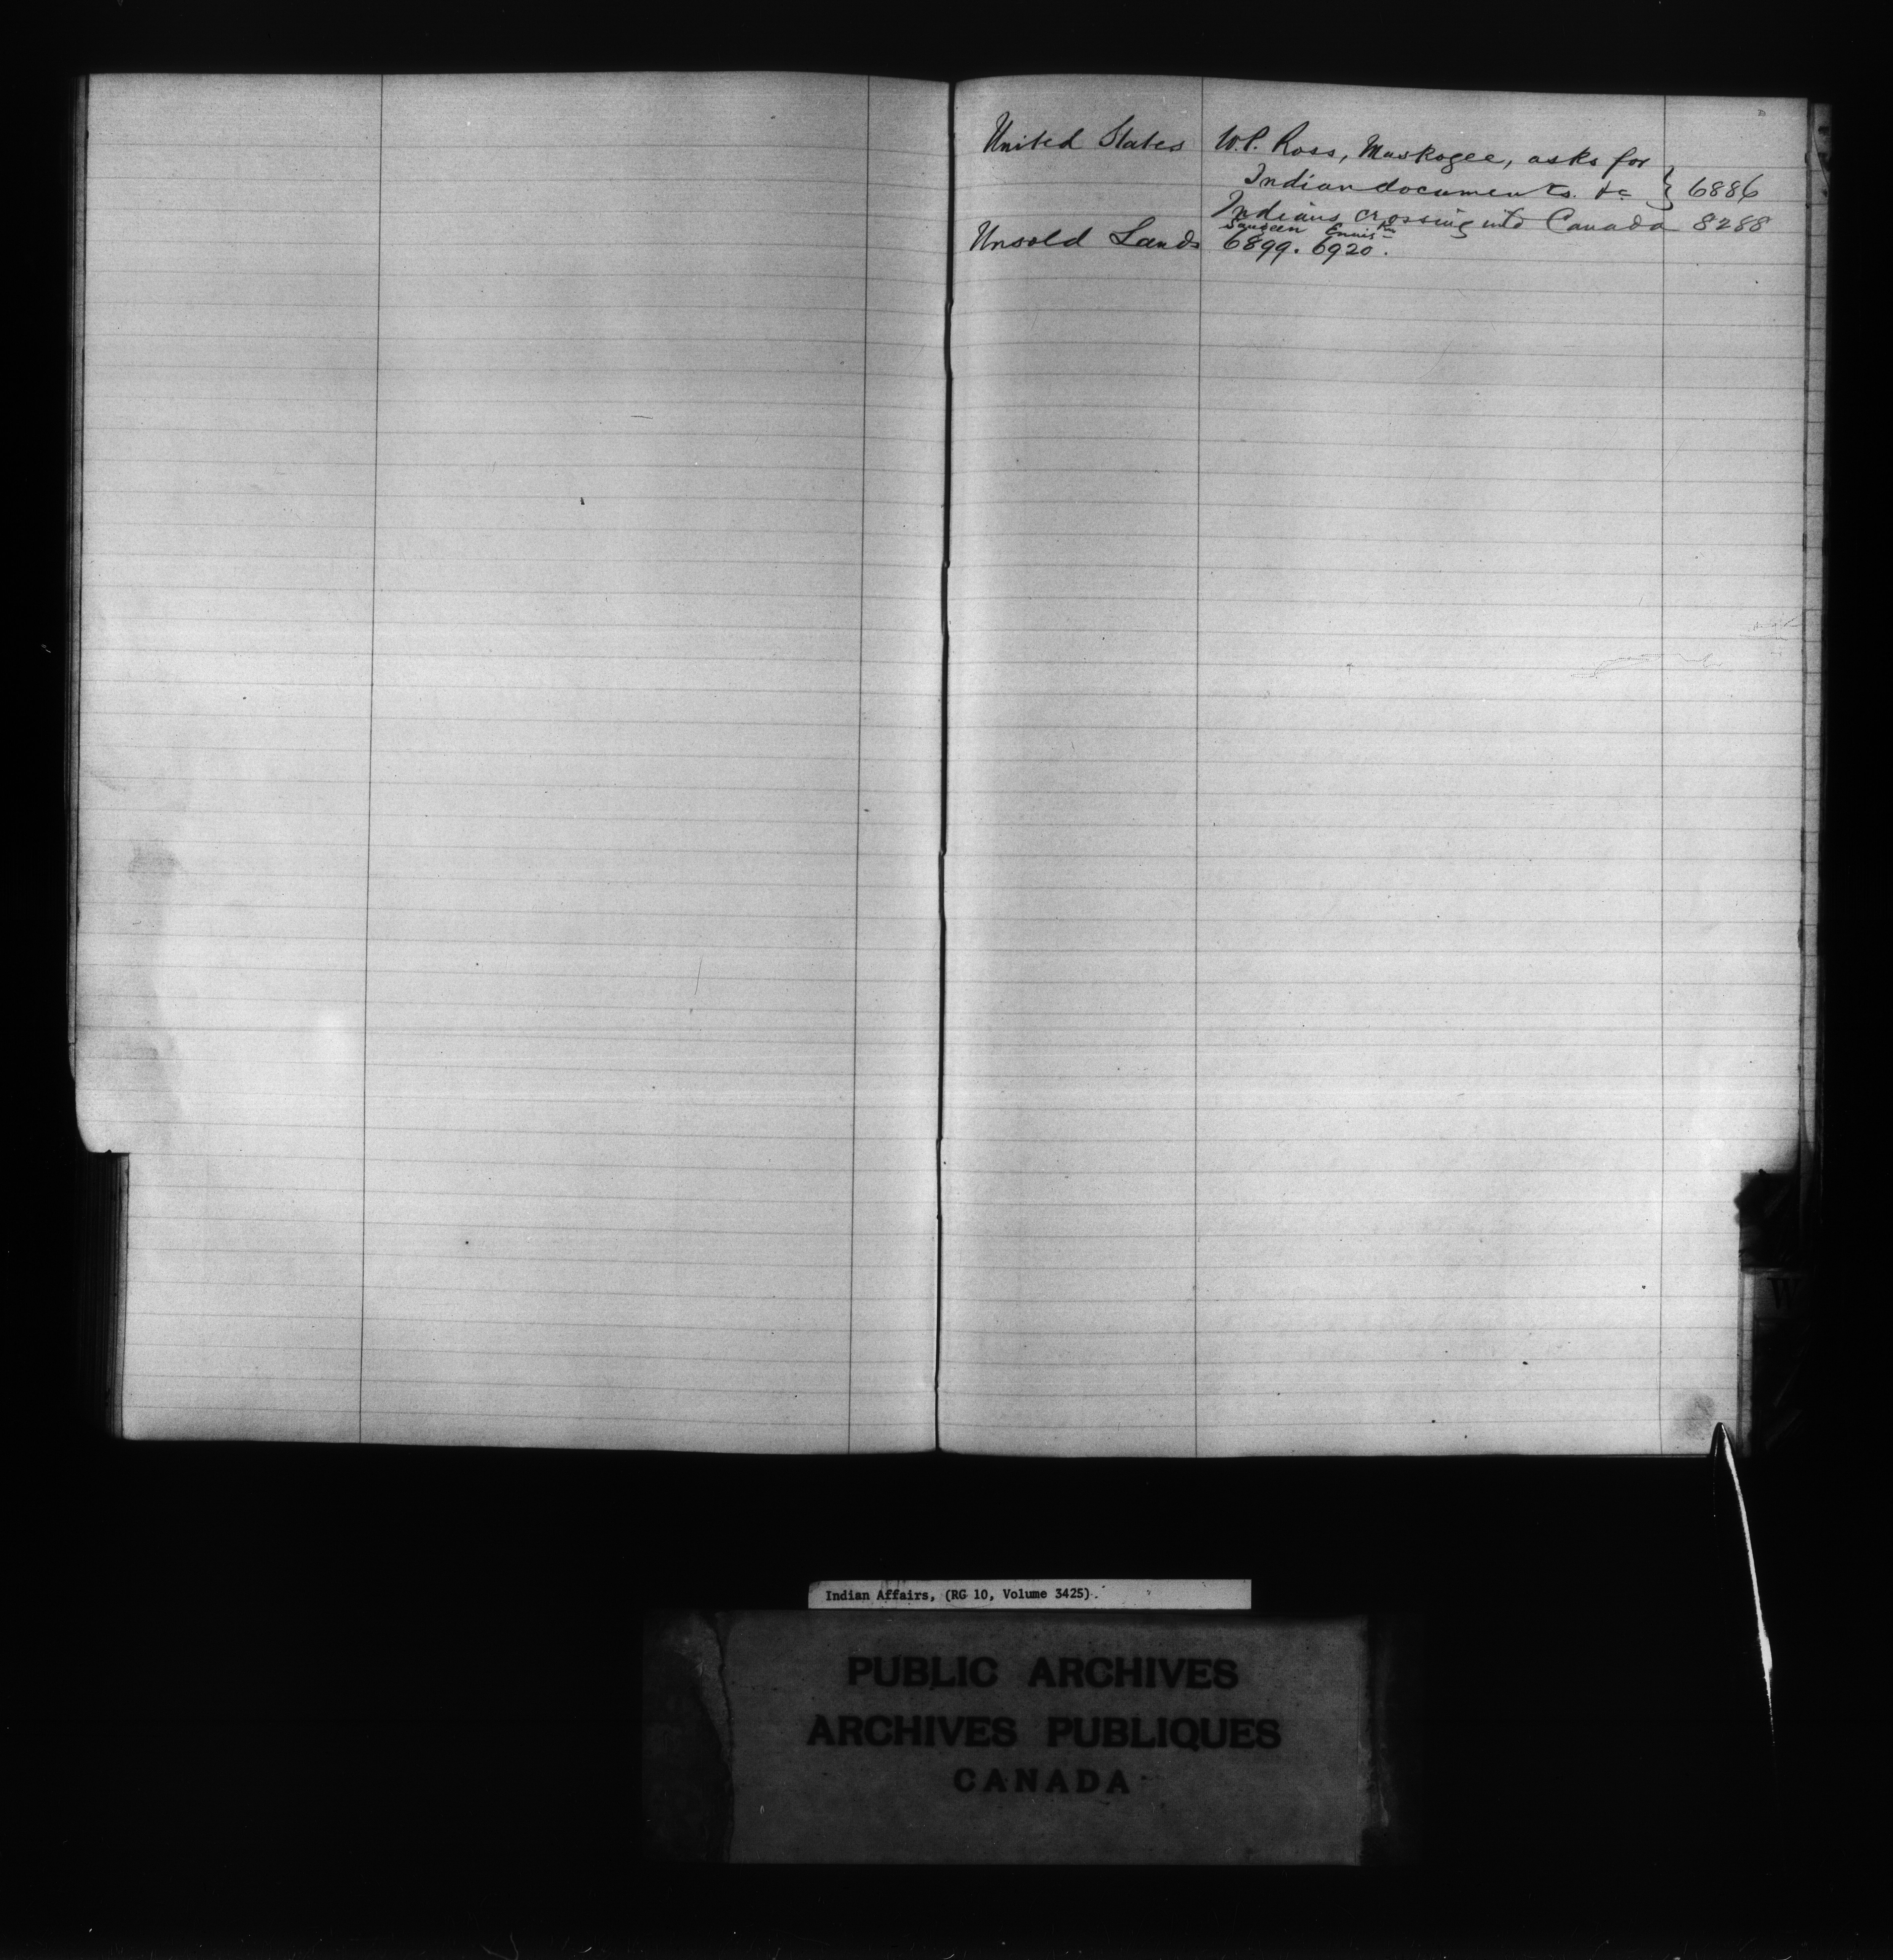 United States W.P. Ross, Muskogee, asks for
Indian documents. &c } 6886
Indians crossing into Canada 8288
Saugeen
Unsold Lands 6899. 6920.
W
Indian Affairs, (RG 10, Volume 3425).
PUBLIC ARCHIVES
ARCHIVES PUBLIQUES
CANADA